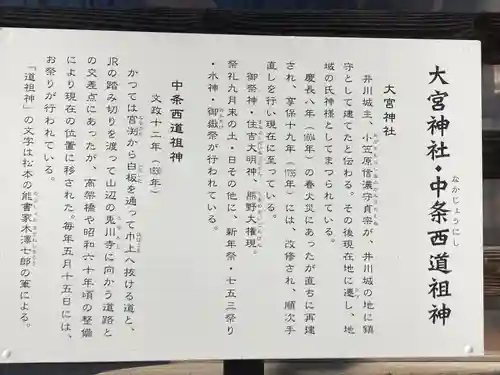 大宮神社・中条西道祖神
なかじょうにし
大宮神社
井川城主、小笠原信濃守貞宗が、井川城の地に鎮
守として建てたと伝わる。その後現在地に遷し、地
域の氏神様としてまつられている。
慶長八年(1604年)の春火災にあったが直ちに再建
され、享保十九年(1735年)には、改修され、順次手
直しを行い現在に至っている。
御祭神・住吉大明神、熊野大権現。
祭礼九月末の土・日その他に、新年祭・七五三祭り
・水神・御嶽祭が行われている。
中条西道祖神
文政十二年(1829年)
かつては宮渕から白板を通って巾上へ抜ける道と、
JRの踏み切りを渡って山辺の兎川寺に向かう道路と
の交差点にあったが、高架橋や昭和六十年頃の整備
により現在の位置に移された。毎年五月十五日には、
お祭りが行われている。
「道祖神」の文字は松本の能書家木澤七郎の筆による。